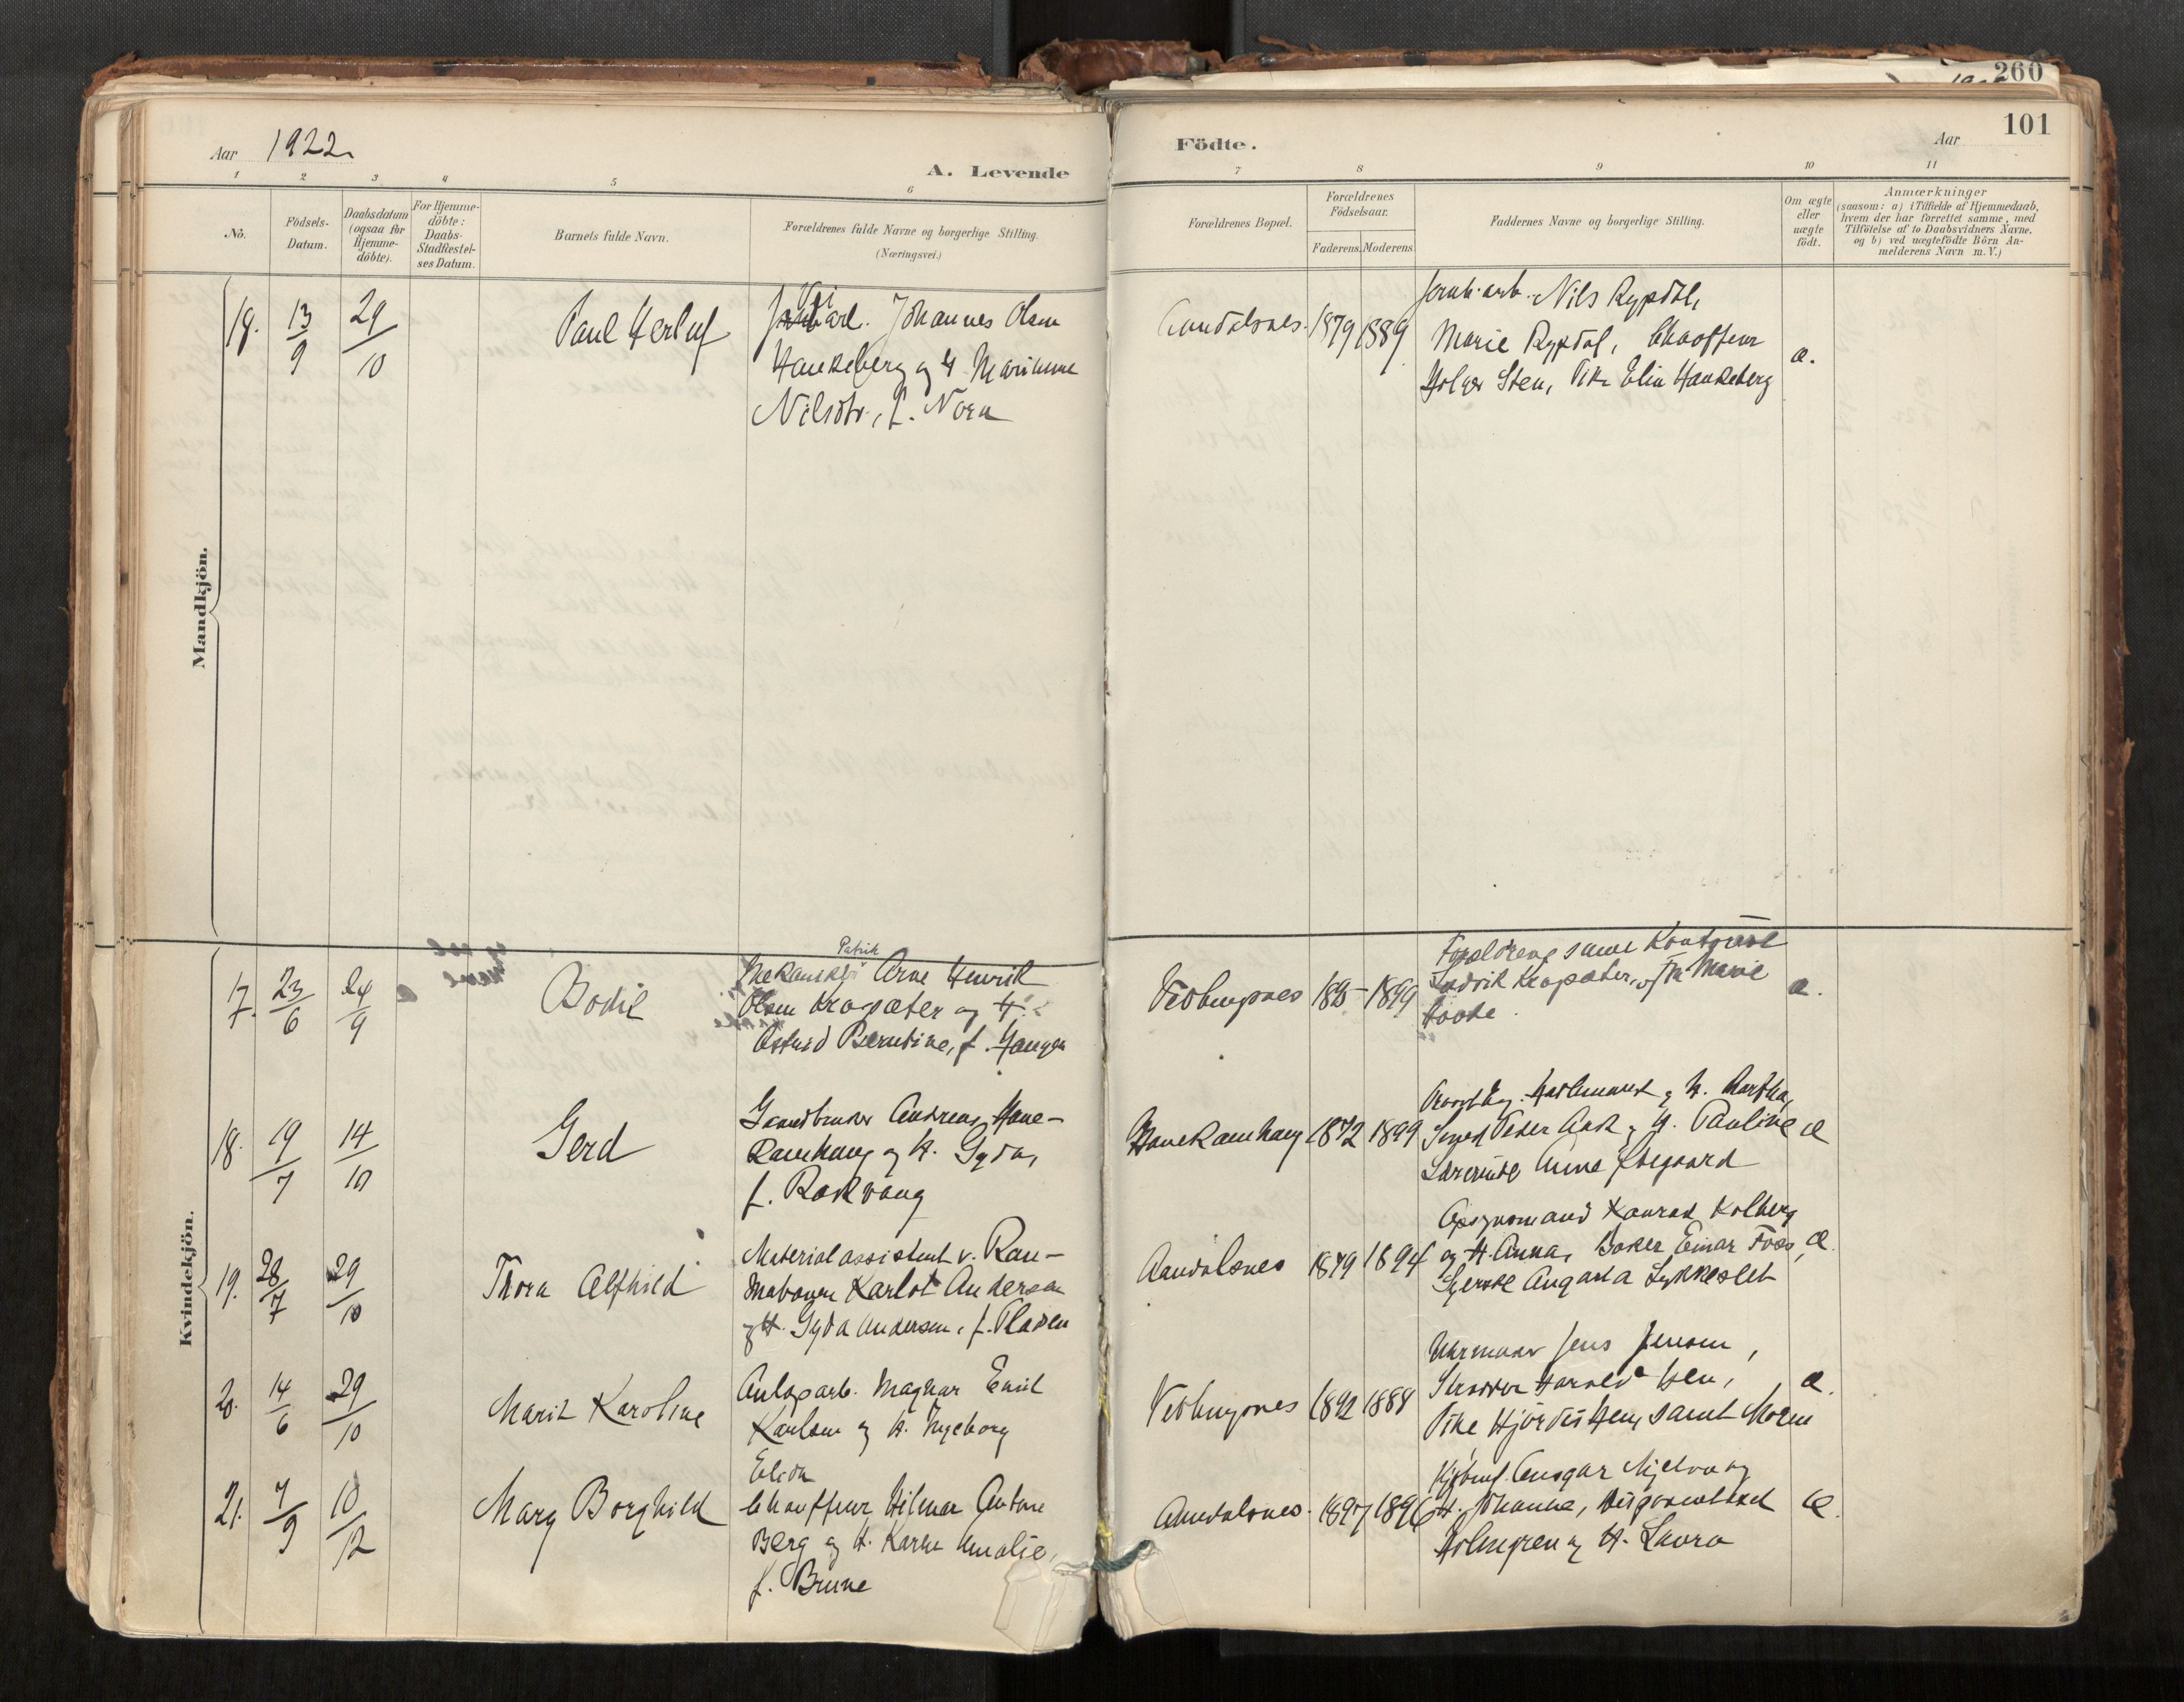 260
Aar 1922.
A. Levende
Födte.
Aar
101
1 2 3 4 5 6 7 8 9 10 11
No.
Födsels-
Datum.
Daabsdatum
(ogsaa for
Hjemme-
döbte).
For Hjemme-
döbte:
Daabs-
Stadfæstel-
ses Datum.
Barnets fulde Navn.
Forældrenes fulde Navne og borgerlige Stilling.
(Næringsvei.)
Forældrenes Bopæl.
Forældrenes
Födselsaar.
Faderens. Moderens
Faddernes Navne og borgerlige Stilling.
Om ægte
eller
uægte
födt.
Anmærkninger
(saasom: a) i Tilfælde af Hjemmedaab,
hvem der har forrettet samme, med
Tilföielse af to Daabsvidners Navne,
og b) ved uægtefödte Börn An-
melderens Navn m. V.)
Mandkjön.
19. 13/9 29/10
Paul Herluf
Vei
arb. Johannes Olsen
Haukeberg og H. Marianne
Nilsdtr., f. Nora
Aandalsnes. 1879 1889
Jernb.arb. Nils Rypdal,
Marie Rypdal, Chauffeur
Holger Sten, Pike Elin Haukeberg
æ.
Kvindekjön.
17. 23/6 24/9
Bodil
Patrik
Arne Henrik
Olsen Kropæter og H.
Astrid Berntine, f. Haugen
Veblungsnes 1895 1899
Forældrene samt Kontorist
Ludvik Kropæter, Marie
æ.
18. 19/7 14/10
Gerd
Gaardbruker Andreas Hane-
kamhaug og H. Gyda,
f. Rokvang
Hanekamhaug 1872 1899
og H. Martha,
Smed Peder Aak og H. Pauline
Lærerinde Anne Ødegaard
æ
19. 28/7 29/10
Thora Alfhild
Materialassistent v. Rau-
mabanen Karlot Andersen
og H. Gyda Andersen, f. Pladsen
Aandalsnes 1879 1894
Opsynsmand Konrad Kolberg
og H. Anna, Baker Einar Foss,
Syerske Augusta Lykkeslet
æ.
20. 14/6 29/10
Marit Karoline
Anlægsarb. Magnar Emil
Karlsen og H. Ingeborg
Elida
Veblungsnes 1892 1888
Urmaker Jens Jensen,
Skrædder Harald Hen,
Pike Hjørdis Hen, samt Moren
æ.
21. 7/9 10/12
Mary Borghild
Chauffeur Hilmar Antone
Berg og H. Karen Amalie,
f. Brune
Aandalsnes. 1897 1896
Ansgar Mjelva og
H. Johanna,
Holmgren og H. Laura
æ.